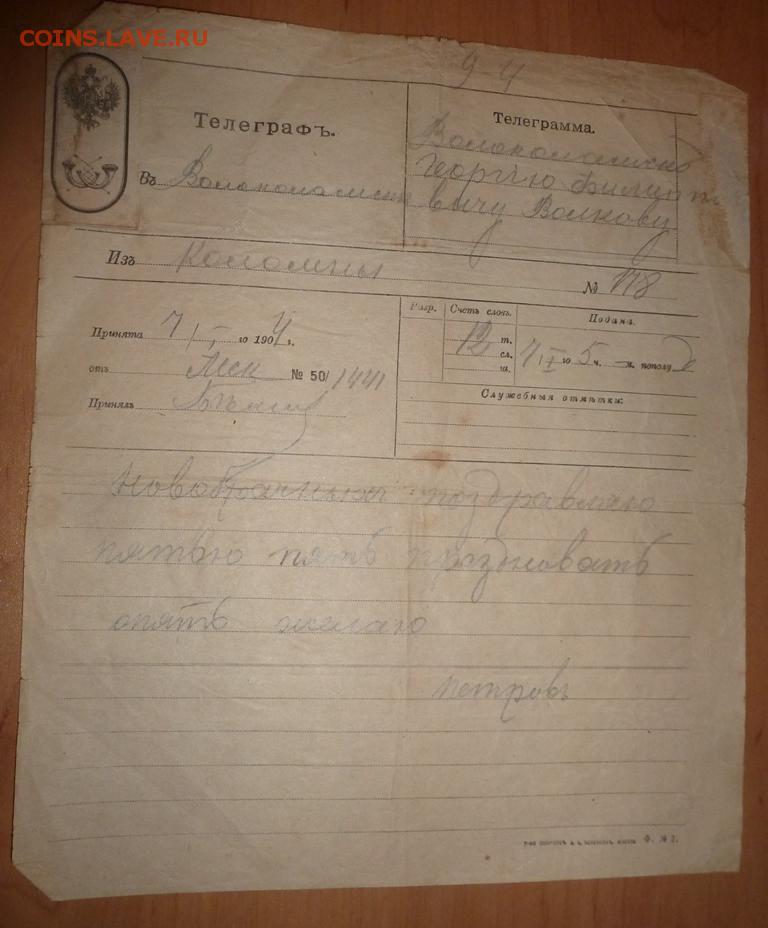 COINS.LAVE.RU
9 4
Телеграфъ.
Въ Волоколамскъ
Телеграмма.
Волоколамскъ
Георгію Филип
вичу Волкову
Изъ Коломны
№ 178
Принята 7/I го 1904 г.
отъ Мск № 50/1441
Принялъ
Разр. Счетъ словъ. Подана.
12 т.
сл. 4/I го 5 ч. м. пополуд
ш.
Служебныя отмѣтки:
Новобрачныхъ поздравляю
пятью пять праздновать
опять желаю
Петровъ
Ф. № 2.